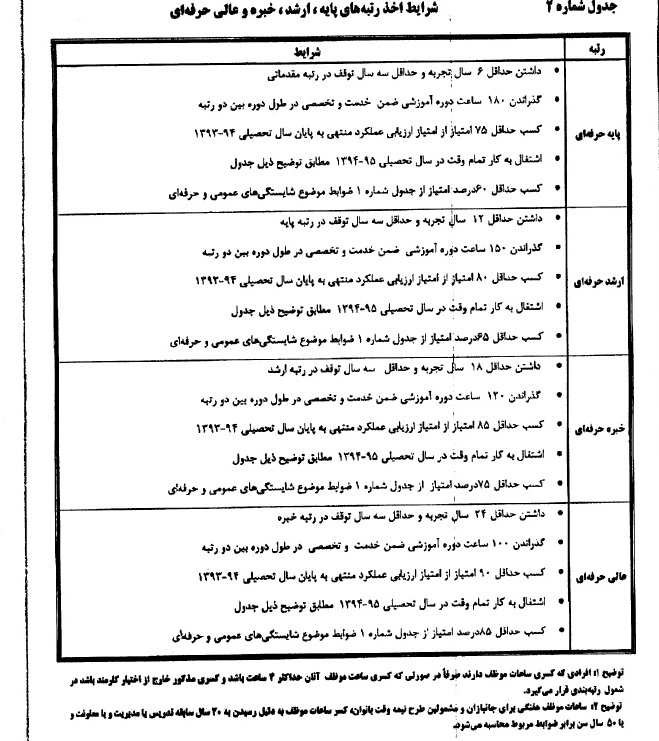 جدول شماره ۲ شرایط اخذ رتبه‌های پایه ، ارشد ، خبره و عالی حرفه‌ای
رتبه شرایط
پایه حرفه‌ای
• داشتن حداقل ۶ سال تجربه و حداقل سه سال توقف در رتبه مقدماتی
• گذراندن ۱۸۰ ساعت دوره آموزشی ضمن خدمت و تخصصی در طول دوره بین دو رتبه
• کسب حداقل ۷۵ امتیاز از امتیاز ارزیابی عملکرد منتهی به پایان سال تحصیلی ۹۴-۱۳۹۳
• اشتغال به کار تمام وقت در سال تحصیلی ۹۵-۱۳۹۴ مطابق توضیح ذیل جدول
• کسب حداقل ۶۰درصد امتیاز از جدول شماره ۱ ضوابط موضوع شایستگی‌های عمومی و حرفه‌ای
ارشد حرفه‌ای
• داشتن حداقل ۱۲ سال تجربه و حداقل سه سال توقف در رتبه پایه
• گذراندن ۱۵۰ ساعت دوره آموزشی ضمن خدمت و تخصصی در طول دوره بین دو رتبه
• کسب حداقل ۸۰ امتیاز از امتیاز ارزیابی عملکرد منتهی به پایان سال تحصیلی ۹۴-۱۳۹۳
• اشتغال به کار تمام وقت در سال تحصیلی ۹۵-۱۳۹۴ مطابق توضیح ذیل جدول
• کسب حداقل ۶۵درصد امتیاز از جدول شماره ۱ ضوابط موضوع شایستگی‌های عمومی و حرفه‌ای
خبره حرفه‌ای
• داشتن حداقل ۱۸ سال تجربه و حداقل سه سال توقف در رتبه ارشد
• گذراندن ۱۲۰ ساعت دوره آموزشی ضمن خدمت و تخصصی در طول دوره بین دو رتبه
• کسب حداقل ۸۵ امتیاز از امتیاز ارزیابی عملکرد منتهی به پایان سال تحصیلی ۹۴-۱۳۹۳
• اشتغال به کار تمام وقت در سال تحصیلی ۹۵-۱۳۹۴ مطابق توضیح ذیل جدول
• کسب حداقل ۷۵درصد امتیاز از جدول شماره ۱ ضوابط موضوع شایستگی‌های عمومی و حرفه‌ای
عالی حرفه‌ای
• داشتن حداقل ۲۴ سال تجربه و حداقل سه سال توقف در رتبه خبره
• گذراندن ۱۰۰ ساعت دوره آموزشی ضمن خدمت و تخصصی در طول دوره بین دو رتبه
• کسب حداقل ۹۰ امتیاز از امتیاز ارزیابی عملکرد منتهی به پایان سال تحصیلی ۹۴-۱۳۹۳
• اشتغال به کار تمام وقت در سال تحصیلی ۹۵-۱۳۹۴ مطابق توضیح ذیل جدول
• کسب حداقل ۸۵درصد امتیاز از جدول شماره ۱ ضوابط موضوع شایستگی‌های عمومی و حرفه‌ای
توضیح ۱: افرادی که کسری ساعات موظف دارند صرفاً در صورتی که کسری ساعت موظف آنان حداکثر ۴ ساعت باشد و کسری مذکور خارج از اختیار کارمند باشد در
شمول رتبه‌بندی قرار می‌گیرد.
توضیح ۲: ساعات موظف هفتگی برای جانبازان و مشمولین طرح نیمه وقت بانوان، کسر ساعات موظف به دلیل رسیدن به ۲۰ سال سابقه تدریس یا مدیریت و یا معاونت و
یا ۵۰ سال سن برابر ضوابط مربوط محاسبه می‌شود.